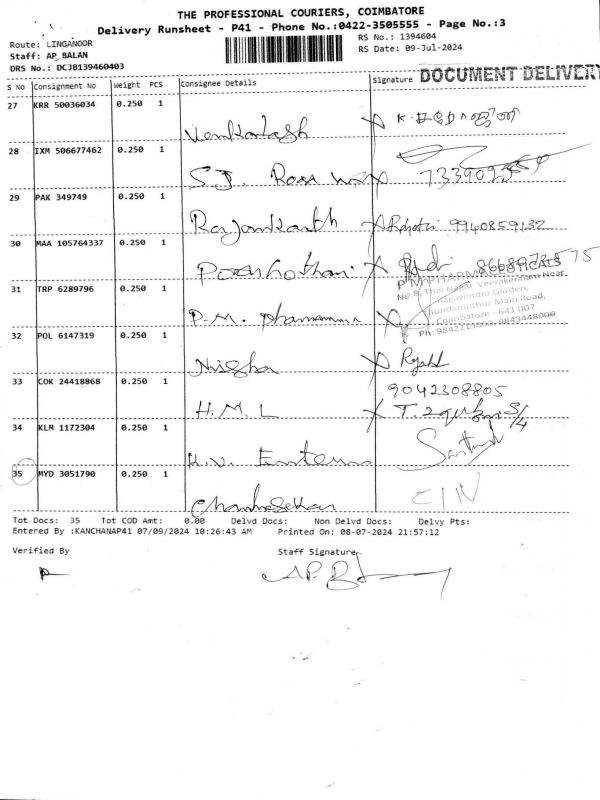 THE PROFESSIONAL COURIERS, COIMBATORE
Delivery Runsheet - P41 - Phone No.:0422-3505555 - Page No.:3
Route: LINGANOOR
RS No.: 1394604
Staff: AP BALAN
RS Date: 09-Jul-2024
DRS No.: DCJB139460403
DOCUMENT DELIVERY
S No Consignment No Weight PCS Consignee Details Signature
27 KRR 50036034 0.250 1
Venkatesh
28 IXM 506677462 0.250 1
S.J.
29 PAK 349749 0.250 1
Rajankanth 9940859132
30 MAA 105764337 0.250 1
31 TRP 6289796 0.250 1
P.M. PHARMACEUTICALS
No.8, Thai Nagar, Veerakeralam Near,
Ragavendra Garden,
Thondamuthur Main Road,
Coimbatore - 641 007
P.M.
32 POL 6147319 0.250 1
Nisha
33 COK 24418868 0.250 1
9042308805
H.M.L
34 KLM 1172304 0.250 1
35 MYD 3051790 0.250 1
Chandrasekar
Tot Docs: 35 Tot COD Amt: 0.00 Delvd Docs: Non Delvd Docs: Delvy Pts:
Entered By :KANCHANAP41 07/09/2024 10:26:43 AM Printed On: 08-07-2024 21:57:12
Verified By Staff Signature